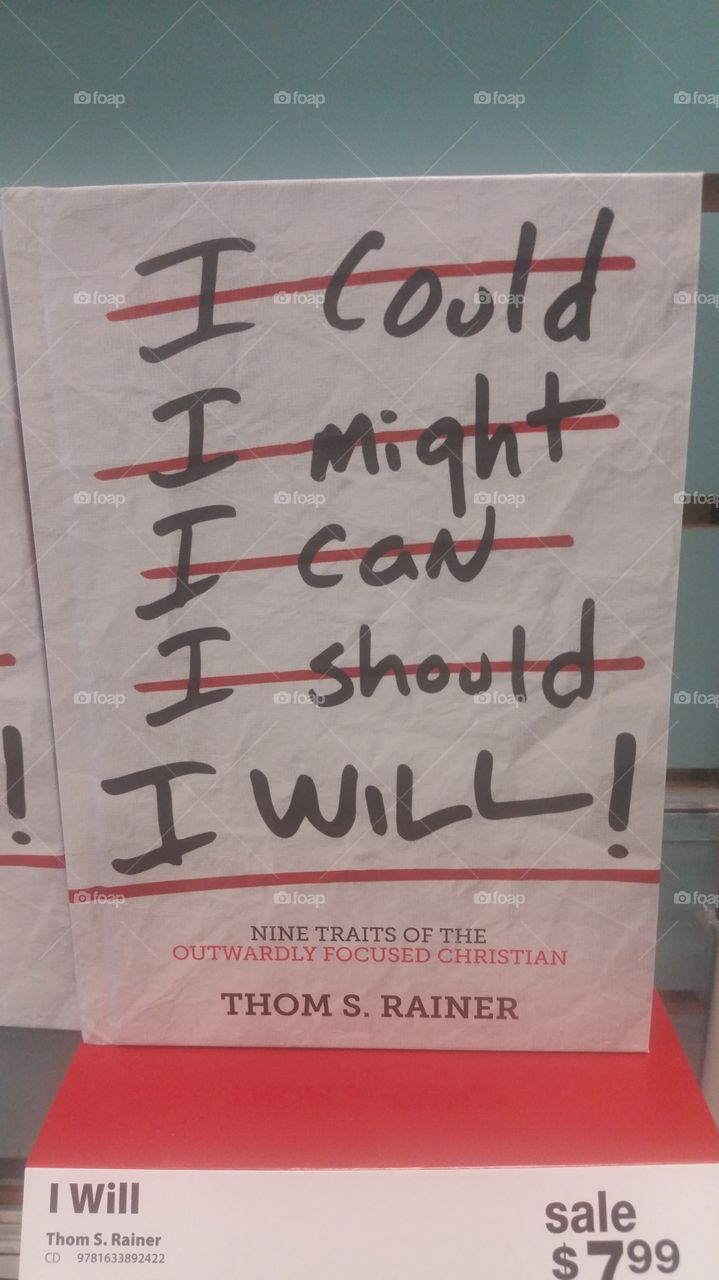 I Could
I might
I can
I should
I WILL!
NINE TRAITS OF THE
OUTWARDLY FOCUSED CHRISTIAN
THOM S. RAINER
I Will
Thom S. Rainer
CD 9781633892422
sale
$7.99
foap